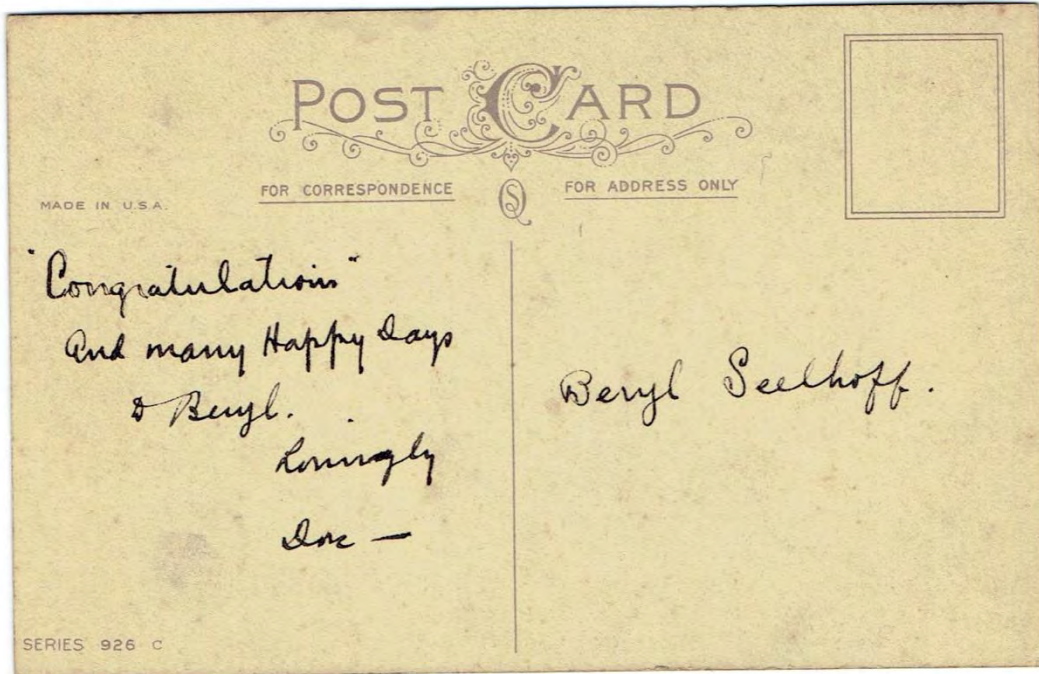 POST CARD
FOR CORRESPONDENCE
FOR ADDRESS ONLY
MADE IN U.S.A.
"Congratulations"
And many Happy Days
Beryl.
Lovingly
Beryl Seelhoff.
SERIES 926 C